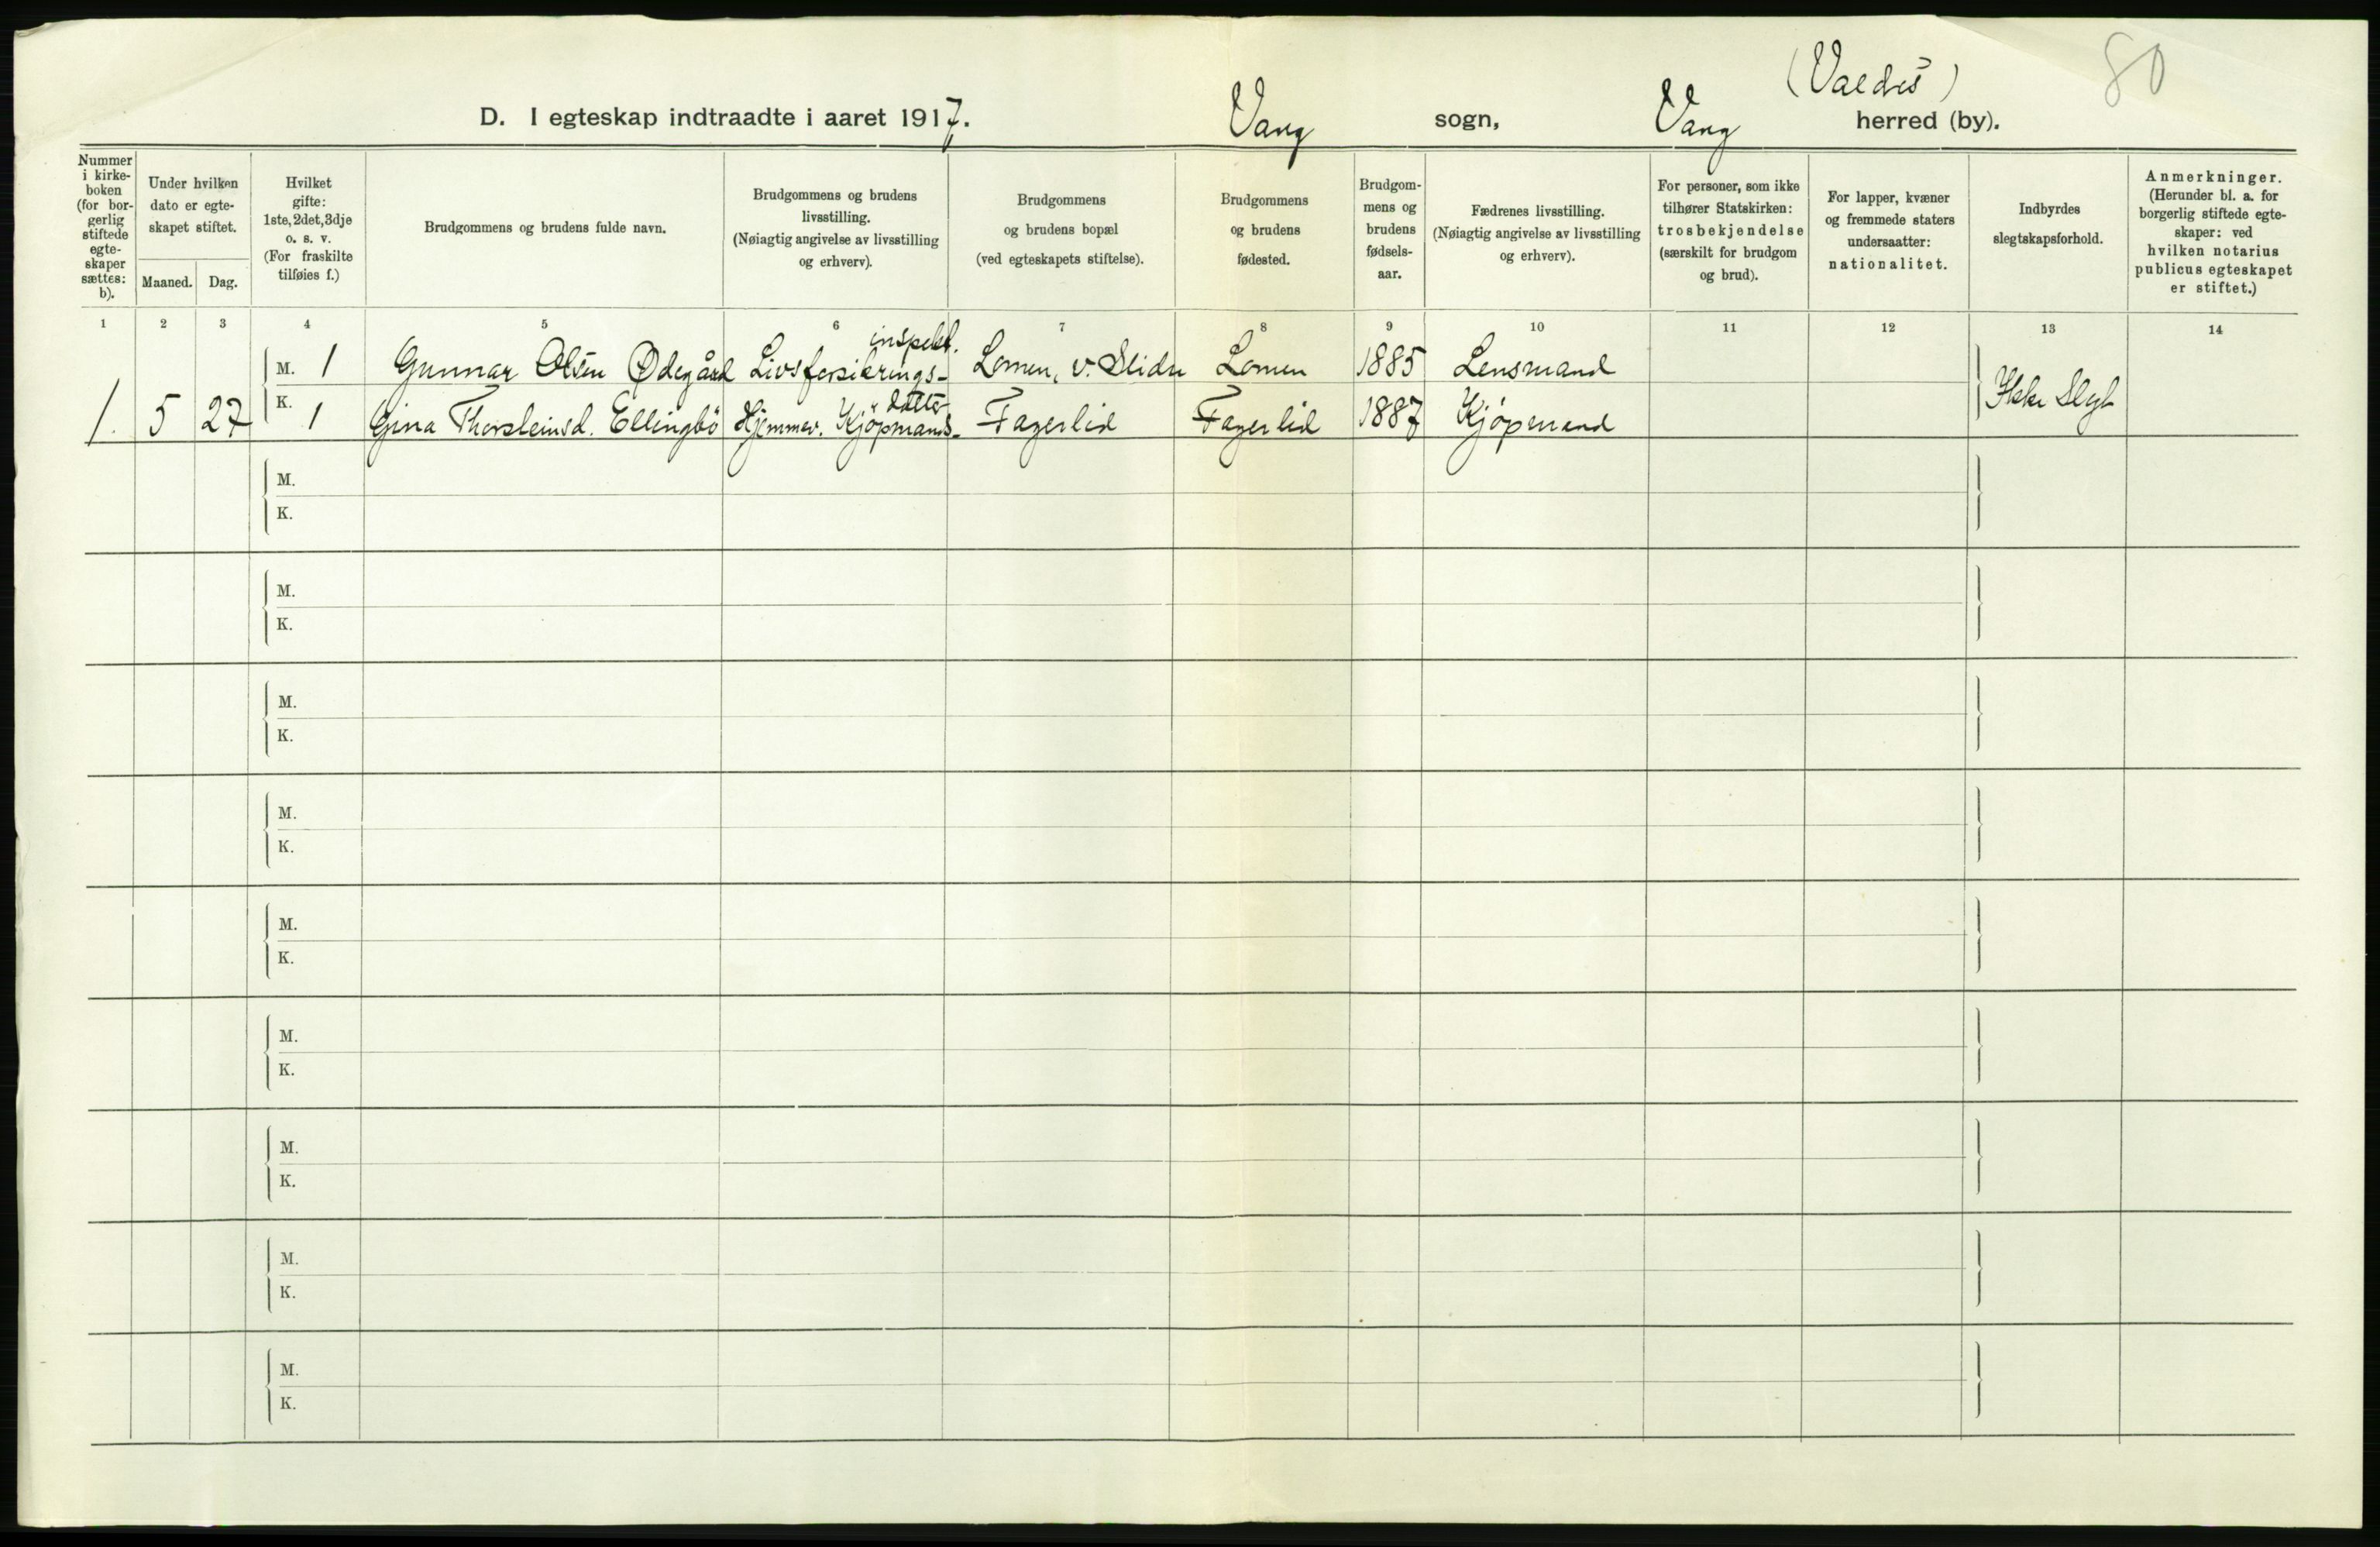 (Valdres)
80
D. I egteskap indtraadte i aaret 1917. Vang sogn, Vang herred (by).
Nummer i kirke- boken (for bor- gerlig stiftede egte- skaper sættes: b).
Under hvilken dato er egte- skapet stiftet.
Maaned. Dag.
Hvilket gifte: 1ste, 2det, 3dje o. s. v. (For fraskilte tilføies f.)
Brudgommens og brudens fulde navn.
Brudgommens og brudens livsstilling. (Nøiagtig angivelse av livsstilling og erhverv).
Brudgommens og brudens bopæl (ved egteskapets stiftelse).
Brudgommens og brudens fødested.
Brudgom- mens og brudens fødsels- aar.
Fædrenes livsstilling. (Nøiagtig angivelse av livsstilling og erhverv).
For personer, som ikke tilhører Statskirken: trosbekjendelse (særskilt for brudgom og brud).
For lapper, kvæner og fremmede staters undersaatter: nationalitet.
Indbyrdes slegtskapsforhold.
Anmerkninger. (Herunder bl. a. for borgerlig stiftede egte- skaper: ved hvilken notarius publicus egteskapet er stiftet.)
1 2 3 4 5 6 7 8 9 10 11 12 13 14
M. 1 Gunnar Olsen Ødegård Livsforsikrings- inspekt. Lomen, v. Slidre Lomen 1885 Lensmand
1. 5 27 K. 1 Gina Thorsteinsd. Ellingbö Hjemmev. Kjøpmands- datter Fagerlid Fagerlid 1887 Kjøpmand Ikke Slegt
M.
K.
M.
K.
M.
K.
M.
K.
M.
K.
M.
K.
M.
K.
M.
K.
M.
K.